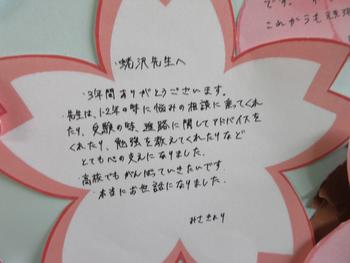 蛯沢先生へ
・3年間ありがとうございます。
・先生は、1-2年の時に悩みの相談に乗ってくれ
たり、受験の時、進路に関してアドバイスを
くれたり、勉強を教えてくれたりなど
とても心の支えになりました。
・高校でもがんばっていきたいです。
・本当にお世話になりました。
みさきより
です。
これからも